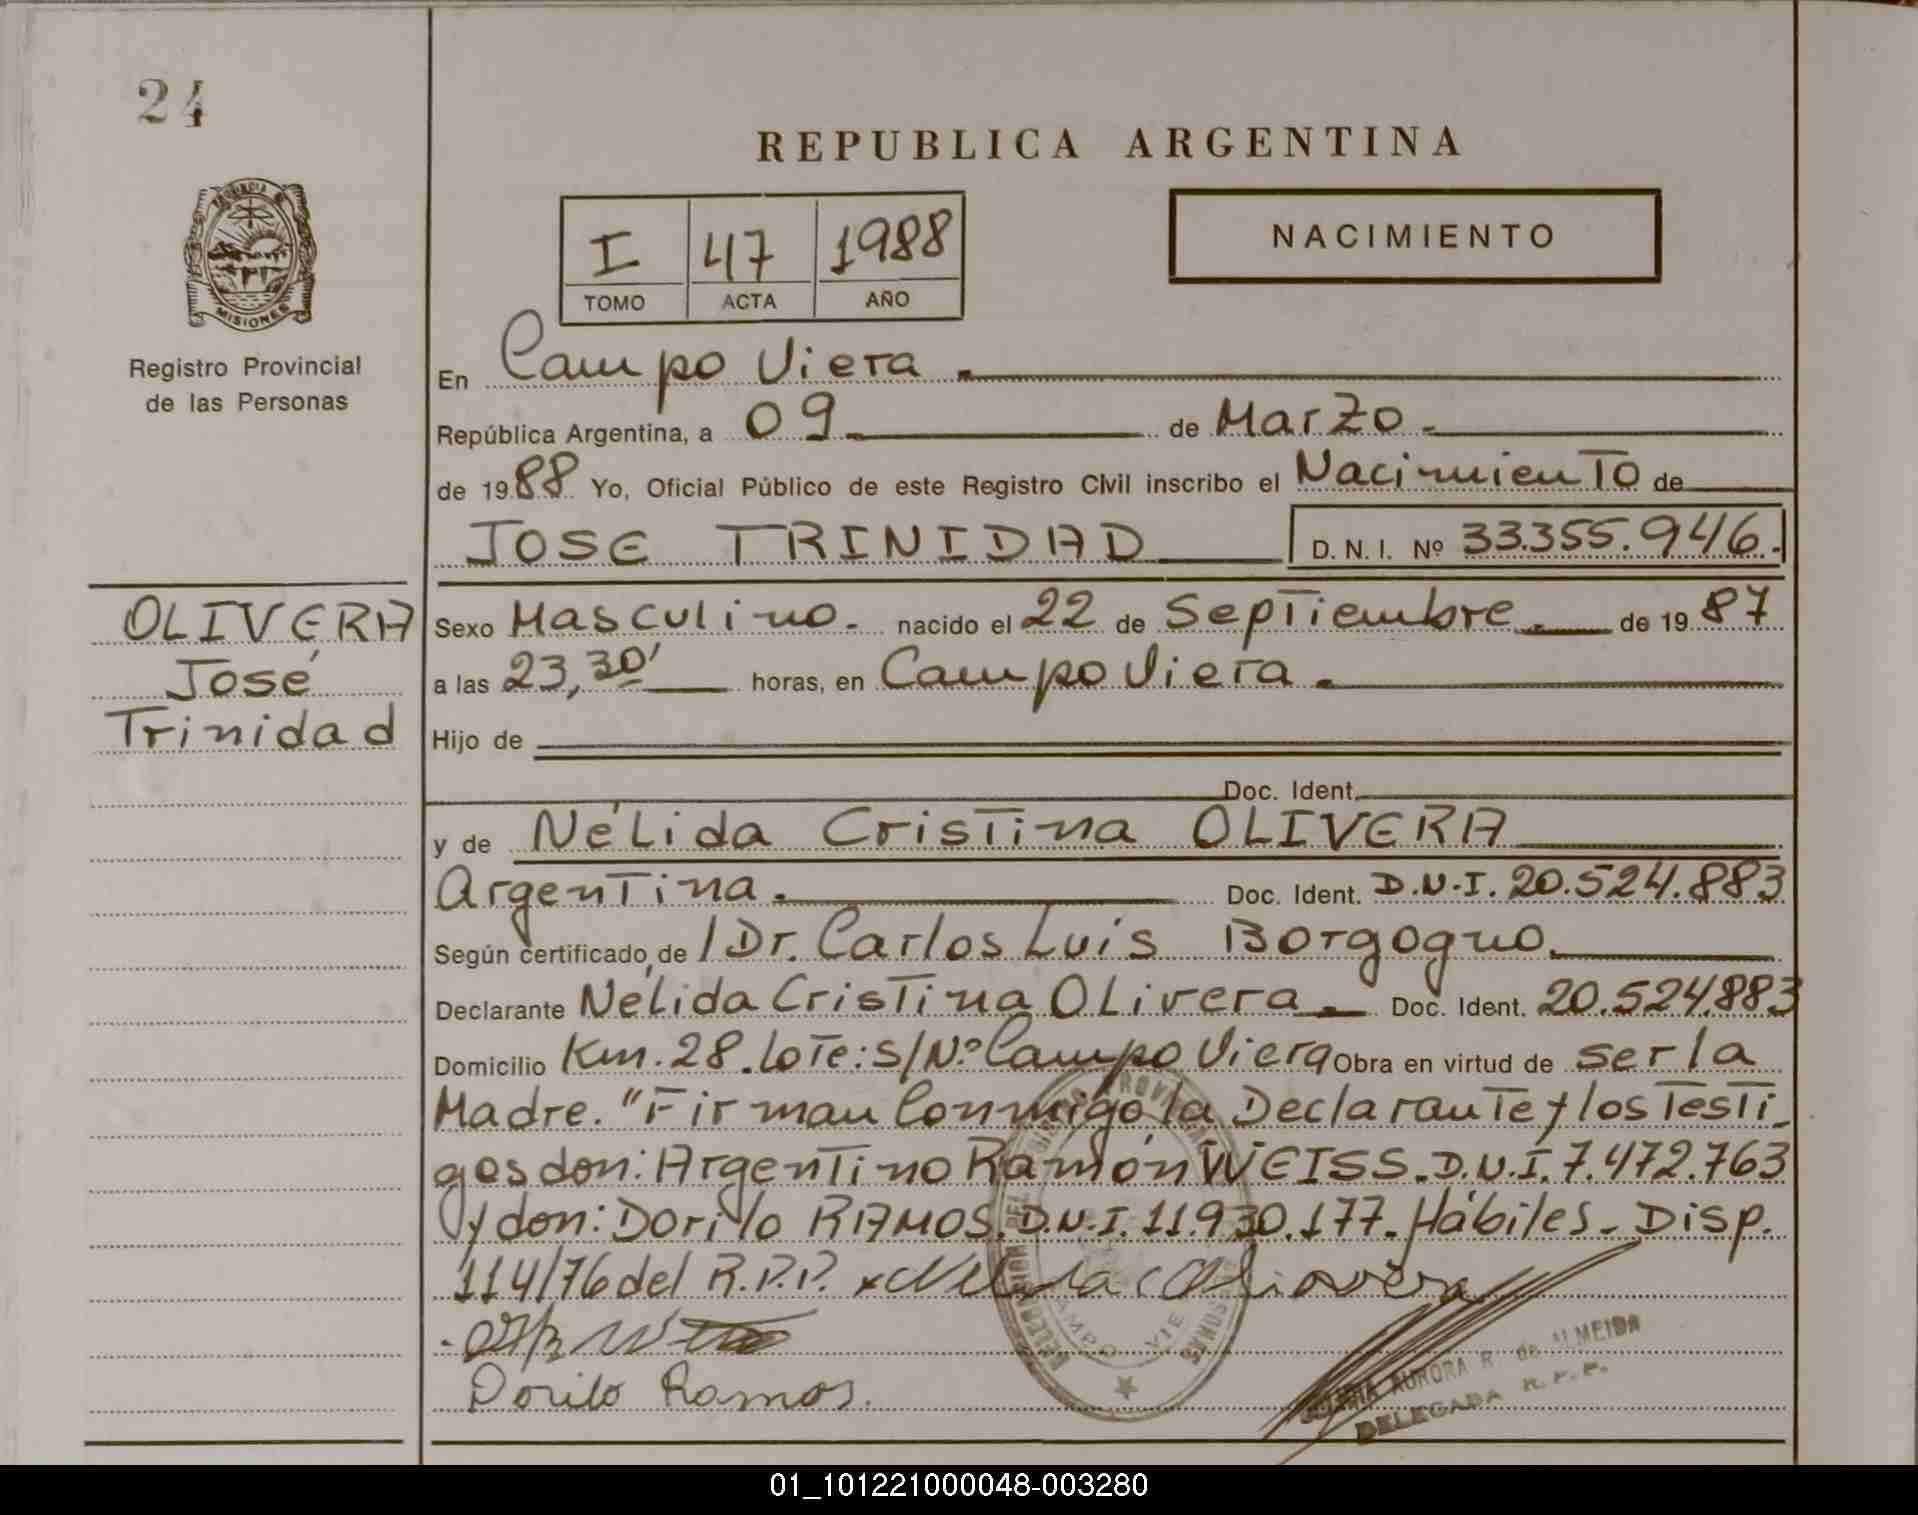 24
REPUBLICA ARGENTINA
I 47 1988
TOMO ACTA AÑO
NACIMIENTO
MISIONES
Registro Provincial
de las Personas
En Campo Viera.
República Argentina, a 09 de Marzo.
de 1988 Yo, Oficial Público de este Registro Civil inscribo el Nacimiento de
JOSE TRINIDAD D. N. I. Nº 33.355.946.
OLIVERA
José
Trinidad
Sexo Masculino. nacido el 22 de Septiembre. de 1987
a las 23,30' horas, en Campo Viera.
Hijo de
Doc. Ident.
y de Nélida Cristina OLIVERA
Argentina. Doc. Ident. D.N.I. 20.524.883
Según certificado de Dr. Carlos Luis Borgogno.
Declarante Nélida Cristina Olivera. Doc. Ident. 20.524.883
Domicilio Km. 28. Lote: s/Nº Campo Viera Obra en virtud de ser la
Madre. "Firman Conmigo la Declarante y los Testi-
gos don: Argentino Ramón WEISS. D.N.I. 7.472.763
y don: Dorilo RAMOS. D.N.I. 11.930.177. Hábiles. Disp.
114/76 del R.P.P. x Nelida C Olivera
Dorilo Ramos.
AURORA R. de ALMEIDA
DELEGADA R. P. P.
01_101221000048-003280